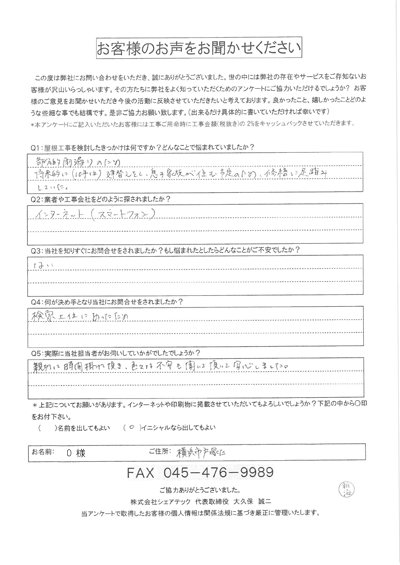 お客様のお声をお聞かせください
この度は弊社にお問い合わせをいただき、誠にありがとうございました。世の中には弊社の存在やサービスをご存知ないお
客様が沢山いらっしゃいます。その方たちに弊社をよく知っていただくためのアンケートにご協力いただけるでしょうか? お客
様のご意見をお聞かせいただき今後の活動に反映させていただきたいと考えております。良かったこと、嬉しかったことどのよう
な些細な事でも結構です。是非ご協力お願いします。(出来るだけ具体的に書いていただければ幸いです)
*本アンケートにご記入いただいたお客様には工事ご用命時に工事金額(税抜き)の2%をキャッシュバックさせていただきます。
Q1:屋根工事を検討したきっかけは何ですか?どんなことで悩まれていましたか?
部分的雨漏りのため
将来的に(10年は)建替えをし、息子家族が住む予定のため、修繕に足踏み
していた。
Q2:業者や工事会社をどのように探されましたか?
インターネット(スマートフォン)
Q3:当社を知りすぐにお問合せをされましたか?もし悩まれたとしたらどんなことがご不安でしたか?
はい
Q4:何が決め手となり当社にお問合せをされましたか?
検索上位にあったため
Q5:実際に当社担当者がお伺いしていかがでしたでしょうか?
*上記についてお願いがあります。インターネットや印刷物に掲載させていただいてもよろしいでしょうか?下記の中から○印
をお付下さい。
( )名前を出してもよい (○)イニシャルなら出してもよい
お名前: O 様 ご住所: 横浜市戸塚区
FAX 045-476-9989
ご協力ありがとうございました。
株式会社シェアテック 代表取締役 大久保 誠二
当アンケートで取得したお客様の個人情報は関係法規に基づき厳正に管理いたします。